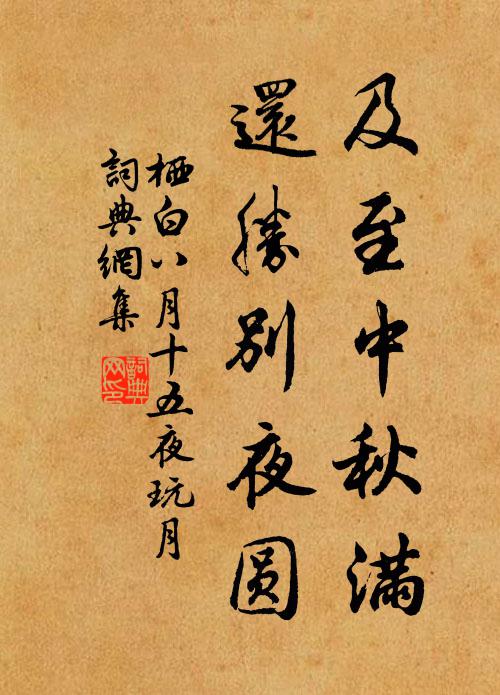 及至中秋满
還勝别夜圆
栖白八月十五夜玩月
詞典網集
詞典
网印